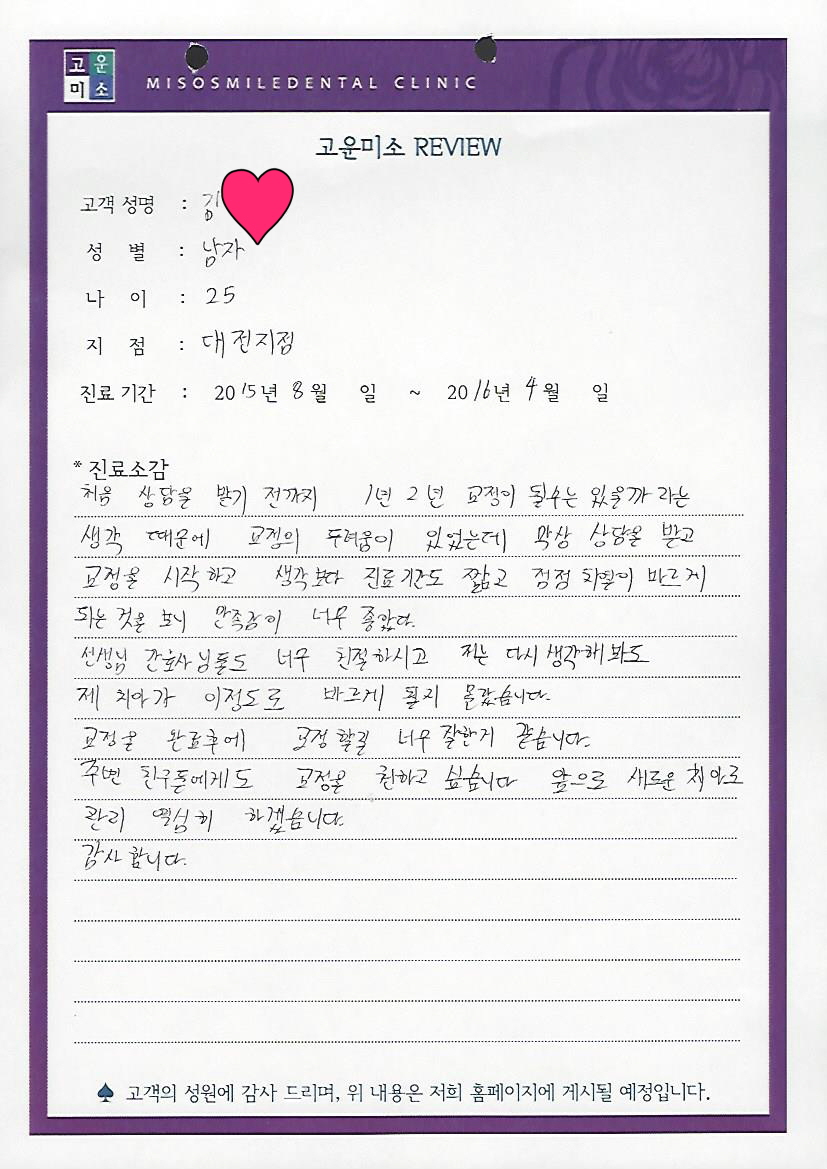 고운
미소
MISOSMILEDENTAL CLINIC
고운미소 REVIEW
고객 성명 : 김
성 별 : 남자
나 이 : 25
지 점 : 대전지점
진료 기간 : 2015년 8월 일 ~ 2016년 4월 일
* 진료소감
처음 상담을 받기 전까지 1년 2년 교정이 될수는 있을까 라는
생각 때문에 교정의 두려움이 있었는데 막상 상담을 받고
교정을 시작하고 생각보다 진료기간도 짧고 점점 치열이 바르게
되는 것을 보니 만족감이 너무 좋았다.
선생님 간호사님들도 너무 친절하시고 저는 다시 생각해 봐도
제 치아가 이정도로 바르게 될지 몰랐습니다.
교정을 완료후에 교정 할길 너무 잘한거 같습니다.
주변 친구들에게도 교정을 권하고 싶습니다 앞으로 새로운 치아로
관리 열심히 하겠습니다.
감사합니다.
♠ 고객의 성원에 감사 드리며, 위 내용은 저희 홈페이지에 게시될 예정입니다.